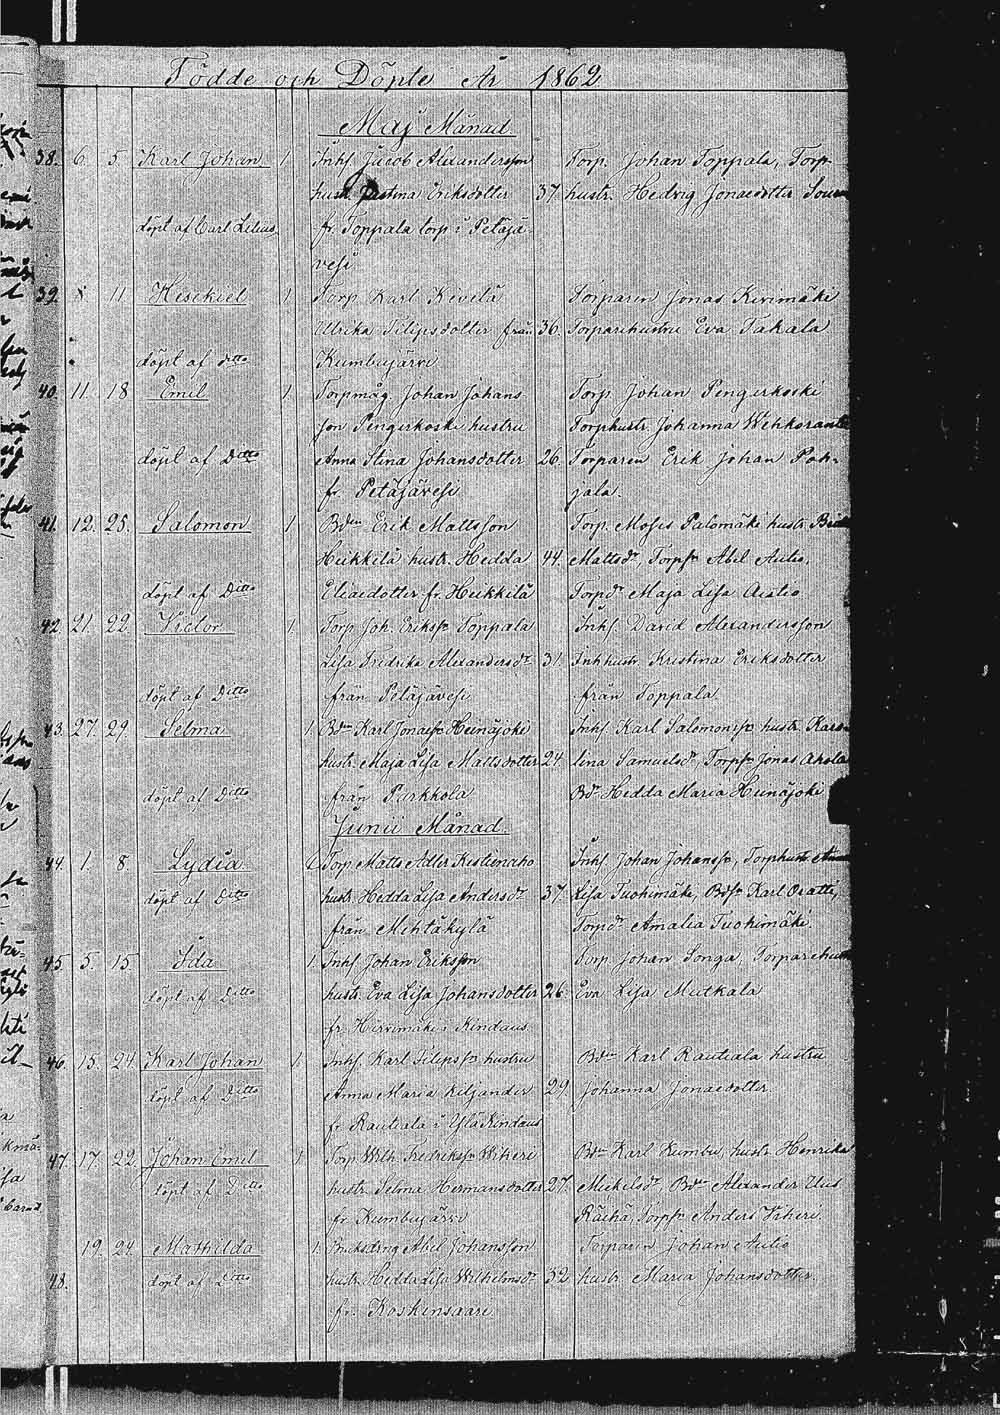 Födde och Döpte År 1862
Maj Månad
38. 6. 5. Karl Johan 1 Inhs. Jacob Alexandersson Torp. Johan Toppala, Torp-
hustr. Eriksdotter 37 hustr. Hedvig Jonaedotter
döpt af Carl Lilius fr. Toppala torp i Petäjä
vesi
39. 8 11 Hesekiel 1 Torp. Karl Kivelä Torparen Jonas Kivimäki
Ulrika Filipsdotter från 36. Torparehustru Eva Takala
döpt af ditto Kumbujärvi
40. 11. 18 Emil 1 Torpmåg Johan Johans Torp. Johan Pengerkoski
son Pengerkoski hustru Torphustr. Johanna
döpt af Ditto Anna Stina Johansdotter 26. Torparen Erik Johan Poh-
fr. Petäjävesi jala.
41. 12. 25. Salomon 1 Bdn Erik Mattsson Torp. Moses Palomäki hustr.
Heikkilä hustr. Hedda 44. Mattsdr, Torpsn Abel Autio,
döpt af Ditto Eliaedotter fr. Heikkilä Torpdr Maja Lisa Autio
42. 21. 22. Victor 1. Torp. Joh. Erikss. Toppala Inhs David Alexandersson
Lisa Fredrika Alexandersdr 31. Inhhustr. Kristina Eriksdotter
döpt af Ditto från Petäjävesi från Toppala
43. 27. 29. Selma 1. Bdn Karl Jonaess. Heinäjoki Inhs. Karl Salomonss. hustr. Karo-
hustr. Maja Lisa Mattsdotter 24 lina Samuelsdr, Torpsn Jonas Ahola
döpt af Ditto från Purkkola Bdr Hedda Maria Heinäjoki
Junii Månad.
44. 1. 8. Lydia Torp Matts Adler Inhs. Johan Johanss., Torphustr.
döpt af Ditto hustr. Hedda Lisa Andersdr 37. Lisa Tuohimäki, Bdsn Karl
från Torpdr Amalia Tuohimäki.
45 5. 15 Ida 1. Inhs Johan Eriksson Torp. Johan Songa, Torparehustr
döpt af Ditto hustr. Eva Lisa Johansdotter 26. Eva Lisa Mutkala
fr. Hirvimäki i Kindaus
46. 15. 24. Karl Johan 1 Inhs. Karl Filipss. hustru Bdn Karl Rautiala hustru
döpt af Ditto Anna Maria Kiljander 29. Johanna Jonaedotter
fr Rautiala i Ylä Kindaus
47. 17. 22. Johan Emil 1 Torp. Wilh. Fredrikss. Wikeri Bdn Karl Kumbu, hustr. Henrika
döpt af Ditto hustr. Selma Hermansdotter 27. Mickelsdr, Bdn Alexander Uus
fr. Kumbujärvi Räihä, Torpsn Anders Wikeri.
19. 24. Mathilda 1. Abel Johansson Torparen Johan Autio
48. döpt af Ditto hustr. Hedda Lisa Wilhelmsdr 32 hustr Maria Johansdotter.
fr. Koskensaari